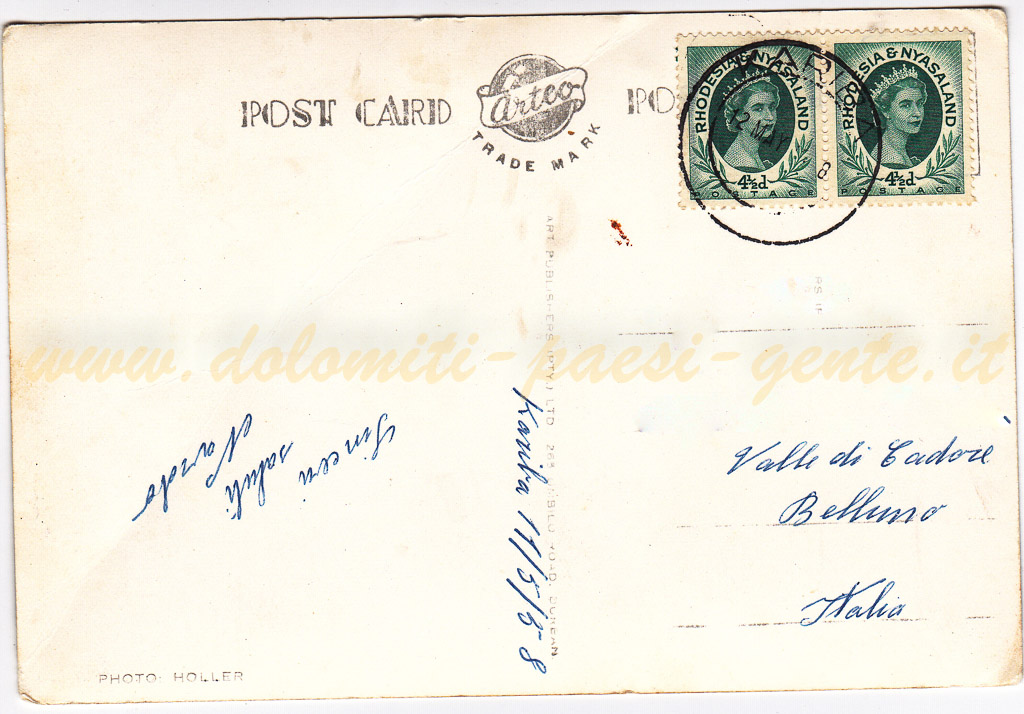 POST CARD
Artco
TRADE MARK
RHODESIA & NYASALAND
4½d
POSTAGE
RHODESIA & NYASALAND
4½d
POSTAGE
KARIBA
12 MAY
8
ART PUBLISHERS (PTY.) LTD
DURBAN
www.dolomiti-paesi-gente.it
Kariba 11/5/58
Sinceri
saluti
Nando
Valle di Cadore
Belluno
Italia
PHOTO: HOLLER